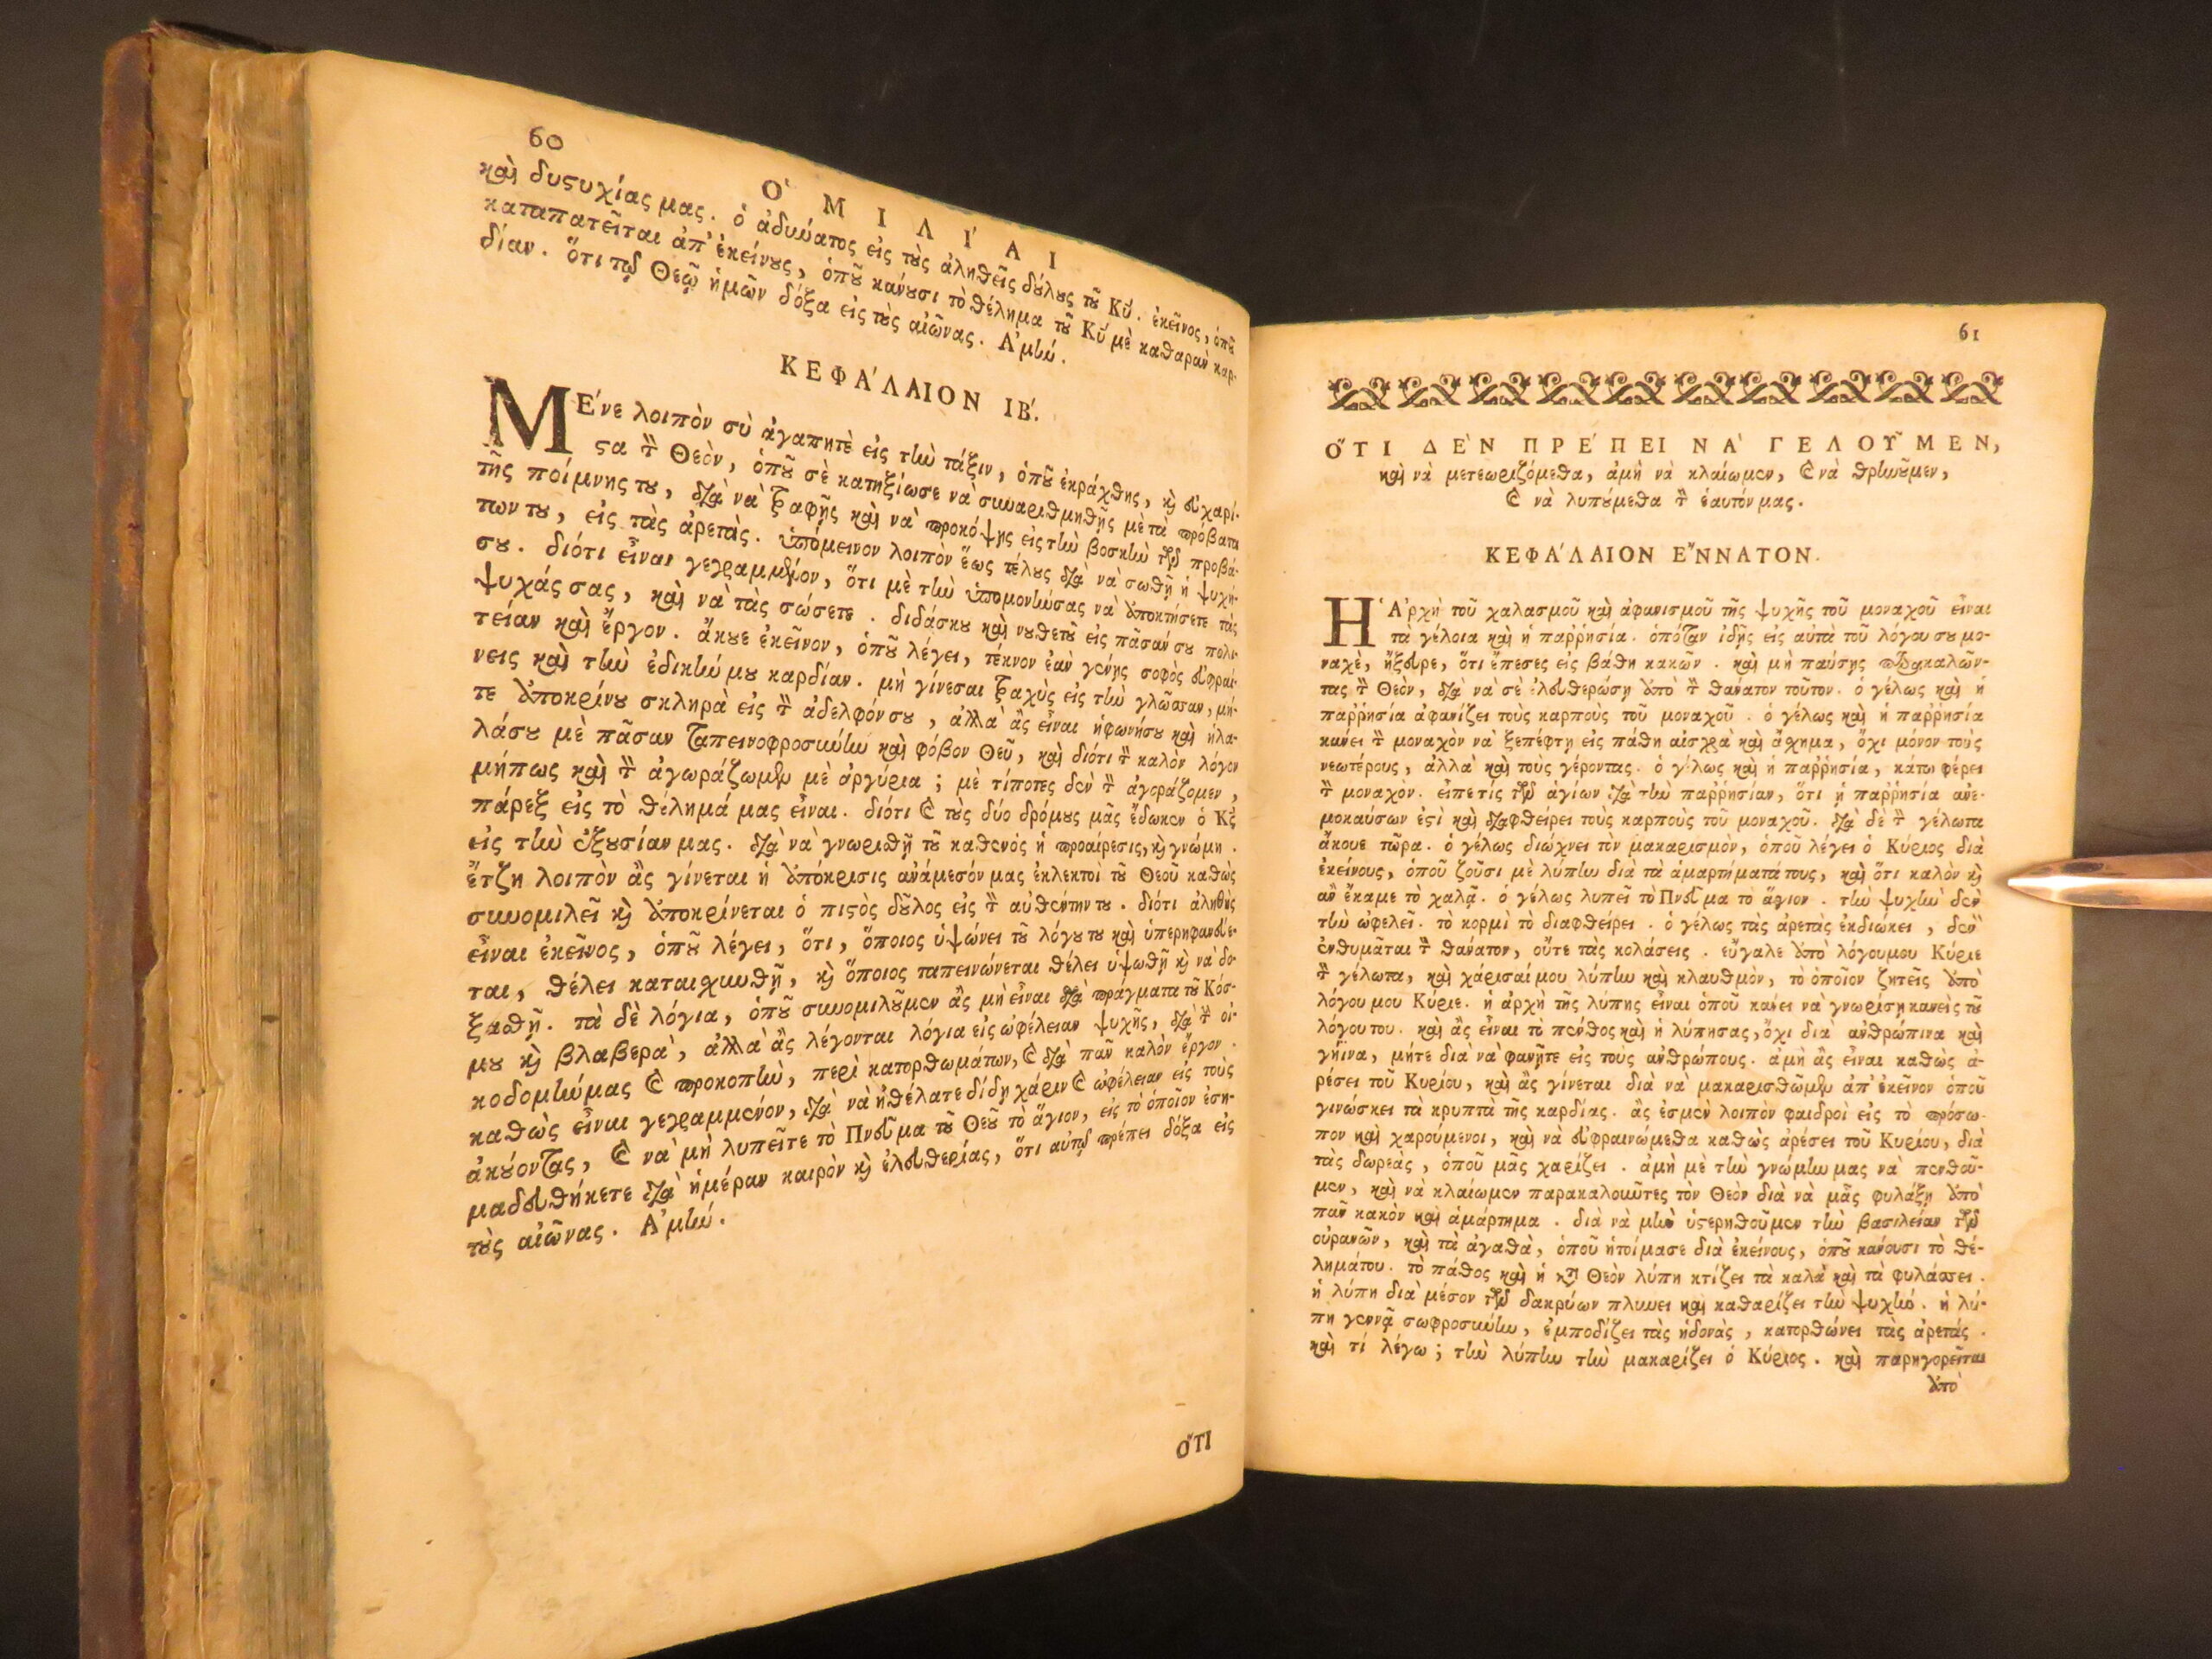 60
Ὁ ΜΙΛΊΑΙ
καὶ δυστυχίας μας. ὁ ἀδυνάτος εἰς τοὺς ἀληθεῖς δούλους τοῦ Κυ. ἐκεῖνος, ὁποῦ
καταπατεῖται ἀπ' ἐκείνους, ὁποῦ κάνουσι τὸ θέλημα τοῦ Κυ μὲ καθαρὰν καρ-
δίαν. ὅτι τῷ Θεῷ ἡμῶν δόξα εἰς τοὺς αἰῶνας. Ἀμήν.
ΚΕΦΆΛΑΙΟΝ ΙΒ΄.
ΜΈνε λοιπὸν σὺ ἀγαπητὲ εἰς τὴν τάξιν, ὁποῦ ἐκράχθης, καὶ εὐχαρί-
στα τὸν Θεὸν, ὁποῦ σὲ κατηξίωσε νὰ συναριθμηθῇς μὲ τὰ πρόβατα
τῆς ποίμνης του, διὰ νὰ τραφῇς καὶ νὰ προκόψῃς εἰς τὴν βοσκὴν τῶν προβά-
των του, εἰς τὰς ἀρετὰς. ὑπόμεινον λοιπὸν ἕως τέλους διὰ νὰ σωθῇ ἡ ψυχή-
σου. διότι εἶναι γεγραμμένον, ὅτι μὲ τὴν ὑπομονήνσας νὰ ἀποκτήσετε τὰς
ψυχάς σας, καὶ νὰ τὰς σώσετε. διδάσκου καὶ νουθετοῦ εἰς πᾶσαν σου πολι-
τείαν καὶ ἔργον. ἄκουε ἐκεῖνον, ὁποῦ λέγει, τέκνον ἐὰν γένῃς σοφὸς εὐφραί-
νεις καὶ τὴν ἐδικήν μου καρδίαν. μὴ γίνεσαι τραχὺς εἰς τὴν γλῶσσαν, μή-
τε ἀποκρίνου σκληρὰ εἰς τὸν ἀδελφόν σου, ἀλλὰ ἂς εἶναι ἡ φωνήσου καὶ ἡ λα-
λάσου μὲ πᾶσαν ταπεινοφροσύνην καὶ φόβον Θεοῦ, καὶ διότι τὸν καλὸν λόγον
μήπως καὶ τὸν ἀγωράζωμεν μὲ ἀργύρια; μὲ τίποτες δὲν τὸν ἀγοράζομεν,
πάρεξ εἰς τὸ θέλημά μας εἶναι. διότι καὶ τοὺς δύο δρόμους μᾶς ἔδωκεν ὁ Κς
εἰς τὴν ἐξουσίαν μας. διὰ νὰ γνωρισθῇ τοῦ καθενὸς ἡ προαίρεσις, καὶ γνώμη.
ἔτζη λοιπὸν ἂς γίνεται ἡ ἀπόκρισις ἀνάμεσόν μας ἐκλεκτοὶ τοῦ Θεοῦ καθὼς
συνομιλεῖ καὶ ἀποκρίνεται ὁ πιστὸς δοῦλος εἰς τὸν αὐθέντην του. διότι ἀληθὴς
εἶναι ἐκεῖνος, ὁποῦ λέγει, ὅτι, ὅποιος ὑψώνει τοῦ λόγου του καὶ ὑπερηφανεύε-
ται, θέλει καταισχυνθῇ, καὶ ὅποιος ταπεινώνεται θέλει ὑψωθῇ καὶ νὰ δο-
ξασθῇ. τὰ δὲ λόγια, ὁποῦ συνομιλοῦμεν ἂς μὴ εἶναι διὰ πράγματα τοῦ Κόσ-
μου καὶ βλαβερὰ, ἀλλὰ ἂς λέγονται λόγια εἰς ὠφέλειαν ψυχῆς, διὰ τὸν οἰ-
κοδομήνμας καὶ προκοπὴν, περὶ κατορθωμάτων, καὶ διὰ πᾶν καλὸν ἔργον.
καθὼς εἶναι γεγραμμενόν, διὰ νὰ ἠθέλατε δίδῃ χάριν καὶ ὠφέλειαν εἰς τοὺς
ἀκούοντας, καὶ νὰ μὴ λυπεῖτε τὸ Πνεῦμα τοῦ Θεοῦ τὸ ἅγιον, εἰς τὸ ὁποῖον ἐση-
μαδευθήκετε διὰ ἡμέραν καιρὸν καὶ ἐλευθερίας, ὅτι αὐτῷ πρέπει δόξα εἰς
τοὺς αἰῶνας. Ἀμήν.
ὍΤΙ
61
ὍΤΙ ΔΈΝ ΠΡΈΠΕΙ ΝΆ ΓΕΛΟΥ͂ΜΕΝ,
καὶ νὰ μετεωριζόμεθα, ἀμὴ νὰ κλαίωμεν, καὶ νὰ θρηνοῦμεν,
καὶ νὰ λυπούμεθα τὸν ἑαυτόν μας.
ΚΕΦΆΛΑΙΟΝ ἜΝΝΑΤΟΝ.
Ἡ Ἀρχὴ τοῦ χαλασμοῦ καὶ ἀφανισμοῦ τῆς ψυχῆς τοῦ μοναχοῦ εἶναι
τὰ γέλοια καὶ ἡ παῤῥησία. ὁπόταν ἰδῇς εἰς αὐτὰ τοῦ λόγου σου μο-
ναχὲ, ἤξευρε, ὅτι ἔπεσες εἰς βάθη κακῶν. καὶ μὴ παύσῃς παρακαλῶν-
τας τὸν Θεὸν, διὰ νὰ σὲ ἐλευθερώσῃ ἀπὸ τὸν θάνατον τοῦτον. ὁ γέλως καὶ ἡ
παῤῥησία ἀφανίζει τοὺς καρποὺς τοῦ μοναχοῦ. ὁ γέλως καὶ ἡ παῤῥησία
κάνει τὸν μοναχὸν νὰ ξεπέφτῃ εἰς πάθη αἰσχρὰ καὶ ἄσχημα, ὄχι μόνον τοὺς
νεωτέρους, ἀλλὰ καὶ τοὺς γέροντας. ὁ γέλως καὶ ἡ παῤῥησία, κάτω φέρει
τὸν μοναχὸν. εἶπε τίς τῶν ἁγίων διὰ τὴν παῤῥησίαν, ὅτι ἡ παῤῥησία ἀνε-
μοκαύσων ἐστὶ καὶ διαφθείρει τοὺς καρποὺς τοῦ μοναχοῦ. διὰ δὲ τὸν γέλωτα
ἄκουε τῶρα. ὁ γέλως διώχνει τὸν μακαρισμὸν, ὁποῦ λέγει ὁ Κύριος διὰ
ἐκείνους, ὁποῦ ζοῦσι μὲ λύπην διὰ τὰ ἁμαρτήματά τους, καὶ ὅτι καλὸν καὶ
ἂν ἔκαμε τὸ χαλᾷ. ὁ γέλως λυπεῖ τὸ Πνεῦμα τὸ ἅγιον. τὴν ψυχὴν δὲν
τὴν ὠφελεῖ. τὸ κορμὶ τὸ διαφθείρει. ὁ γέλως τὰς ἀρετὰς ἐκδιώκει, δὲν
ἐνθυμᾶται τὸν θάνατον, οὔτε τὰς κολάσεις. εὔγαλε ἀπὸ λόγουμου Κύριε
τὸν γέλωτα, καὶ χάρισαί μου λύπην καὶ κλαυθμὸν, τὸ ὁποῖον ζητεῖς ἀπὸ
λόγου μου Κύριε. ἡ ἀρχὴ τῆς λύπης εἶναι ὁποῦ κάνει νὰ γνωρίσῃ κανεὶς τοῦ
λόγου του. καὶ ἂς εἶναι τὸ πένθος καὶ ἡ λύπησας, ὄχι διὰ ἀνθρώπινα καὶ
γήϊνα, μήτε διὰ νὰ φανῆτε εἰς τοὺς ἀνθρώπους. ἀμὴ ἂς εἶναι καθὼς ἀ-
ρέσει τοῦ Κυρίου, καὶ ἂς γίνεται διὰ νὰ μακαρισθῶμεν ἀπ' ἐκεῖνον ὁποῦ
γινώσκει τὰ κρυπτὰ τῆς καρδίας. ἂς ἐσμὲν λοιπὸν φαιδροὶ εἰς τὸ πρόσω-
πον καὶ χαρούμενοι, καὶ νὰ εὐφραινώμεθα καθὼς ἀρέσει τοῦ Κυρίου, διὰ
τὰς δωρεὰς, ὁποῦ μᾶς χαρίζει. ἀμὴ μὲ τὴν γνώμην μας νὰ πενθοῦ-
μεν, καὶ νὰ κλαίωμεν παρακαλοῦντες τὸν Θεὸν διὰ νὰ μᾶς φυλάξῃ ἀπὸ
πᾶν κακὸν καὶ ἁμάρτημα. διὰ νὰ μὴν ὑστερηθοῦμεν τὴν βασιλείαν τῶν
οὐρανῶν, καὶ τὰ ἀγαθὰ, ὁποῦ ἡτοίμασε διὰ ἐκείνους, ὁποῦ κάνουσι τὸ θέ-
λημάτου. τὸ πάθος καὶ ἡ κατὰ Θεὸν λύπη κτίζει τὰ καλὰ καὶ τὰ φυλάσσει.
ἡ λύπη διὰ μέσον τῶν δακρύων πλύνει καὶ καθαρίζει τὴν ψυχήν. ἡ λύ-
πη γεννᾷ σωφροσύνην, ἐμποδίζει τὰς ἡδονὰς, κατορθώνει τὰς ἀρετάς.
καὶ τί λέγω; τὴν λύπην τὴν μακαρίζει ὁ Κύριος. καὶ παρηγορεῖται
ἀπὸ